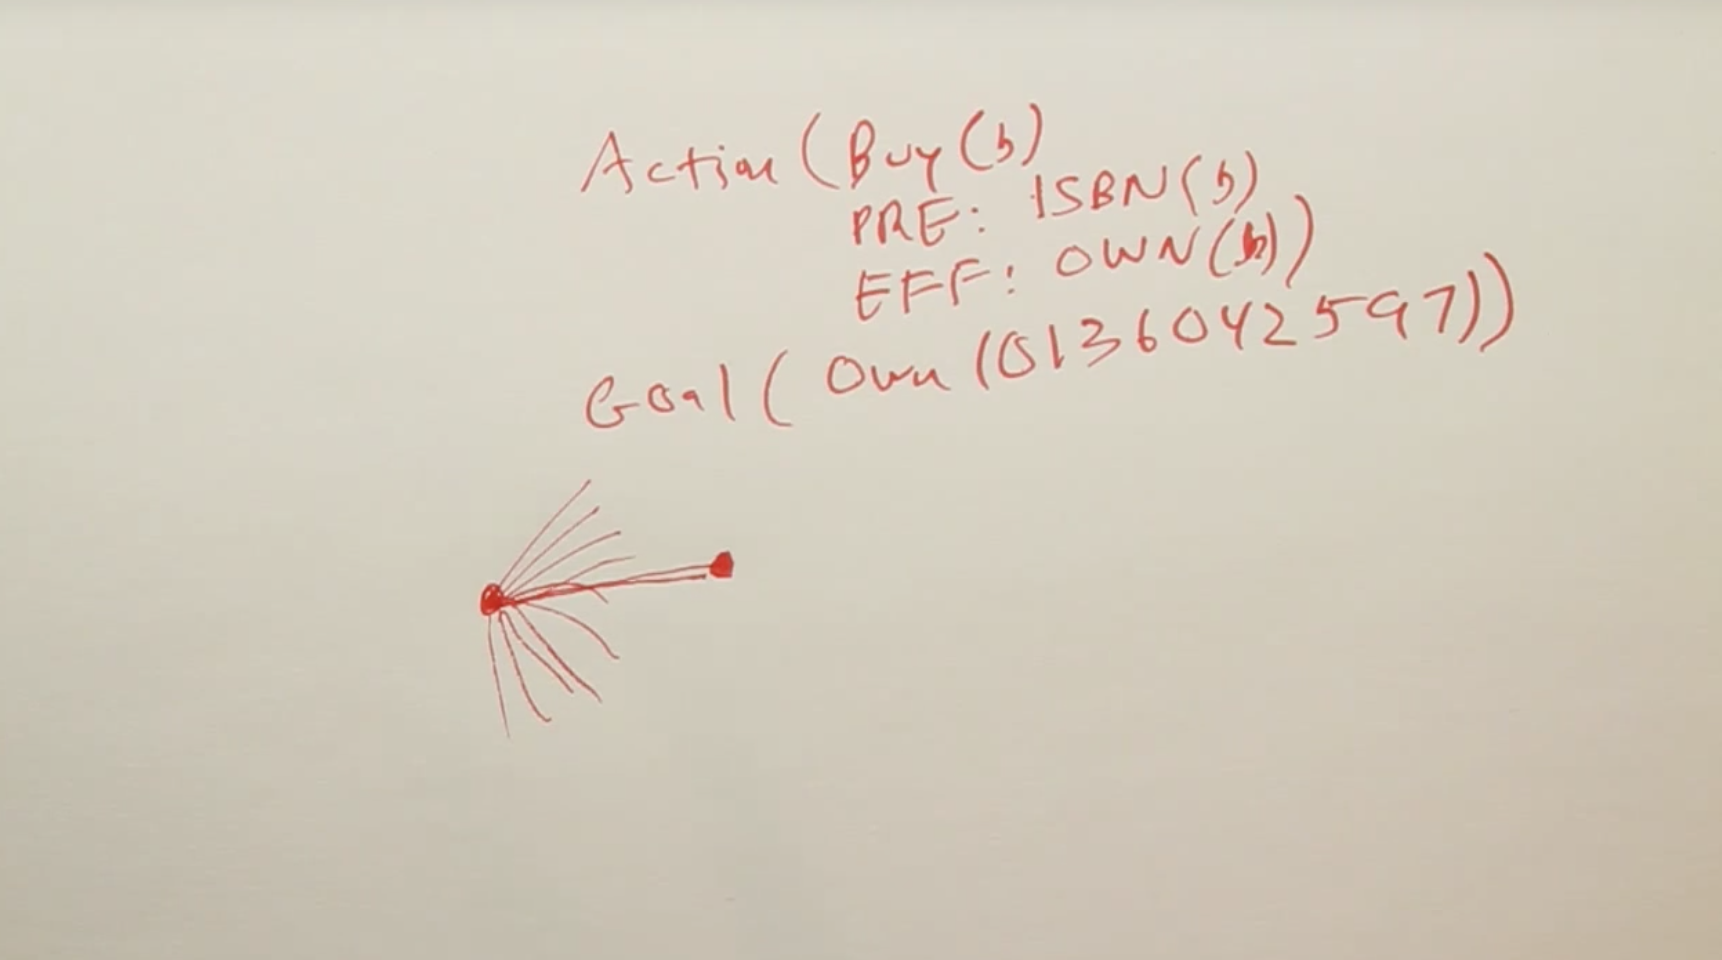 Action (Buy(b)
PRE: ISBN(b)
EFF: OWN(b))
Goal ( Own (0136042597))